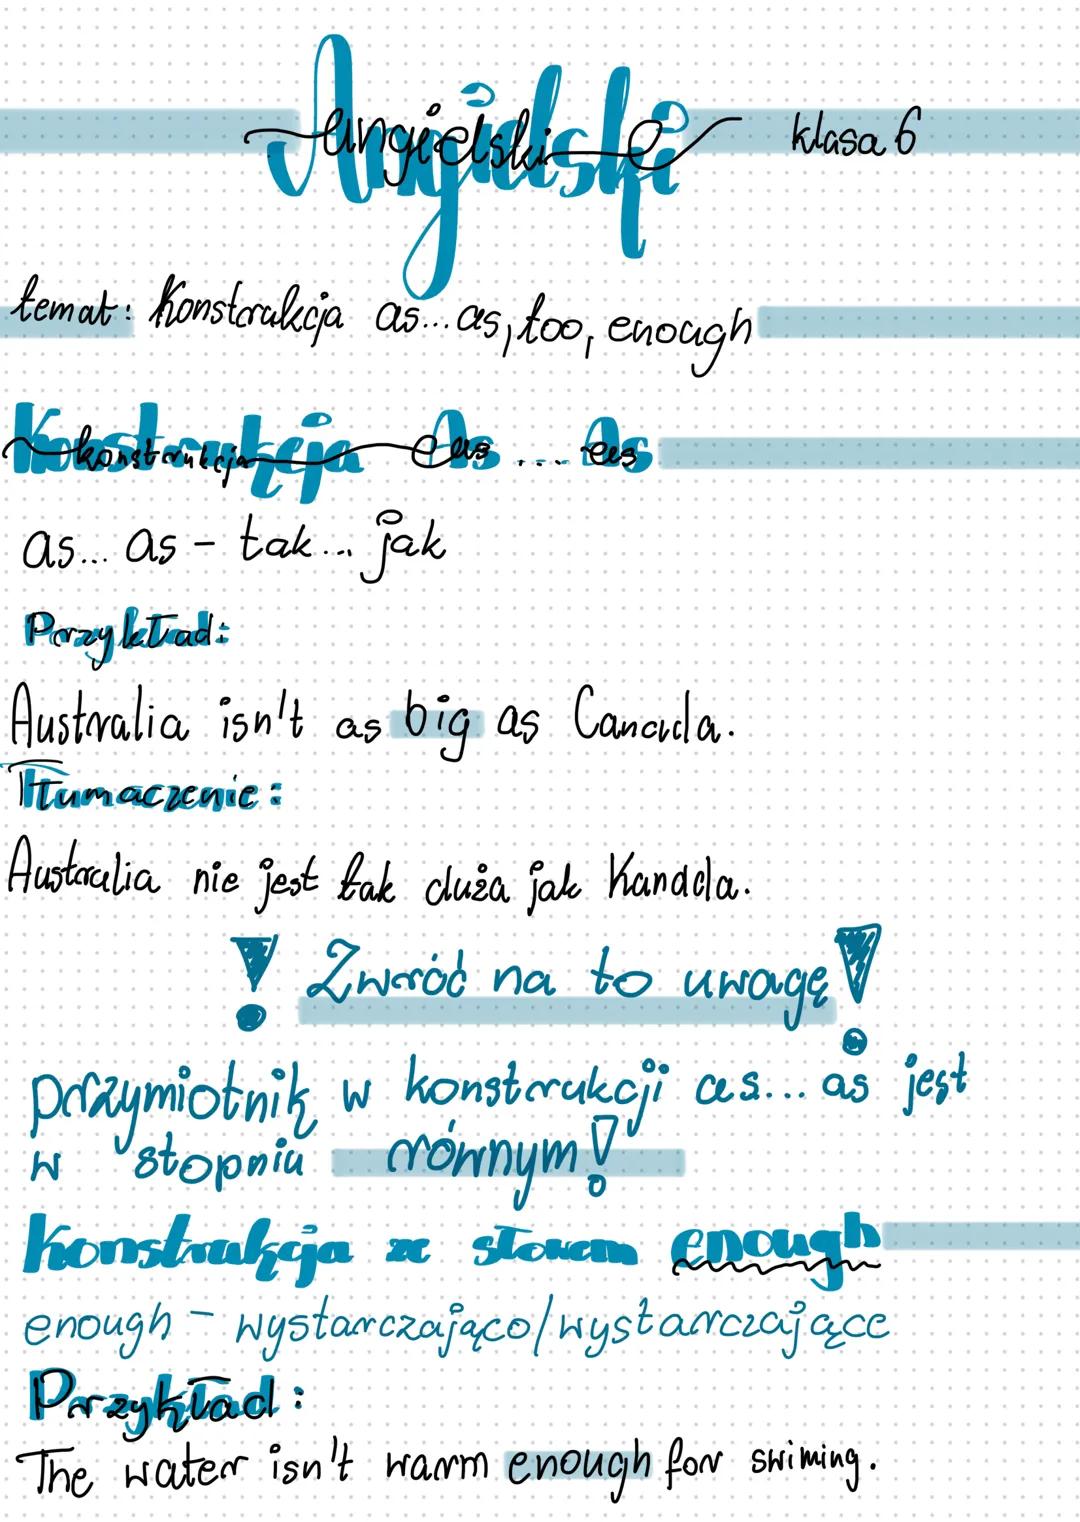 Angielski klasa 6
temat: Konstrukcja as...as, too, enough
Konstrukcja As ... As
as... as - tak... jak
Przykład:
Australia isn't as big as Canada.
Tłumaczenie:
Australia nie jest tak duża jak Kanada.
! Zwróć na to uwagę!
przymiotnik w konstrukcji as... as jest
w stopniu równym!
Konstrukcja ze słowem enough
enough - wystarczająco/wystarczające
Przykład:
The water isn't warm enough for swiming.